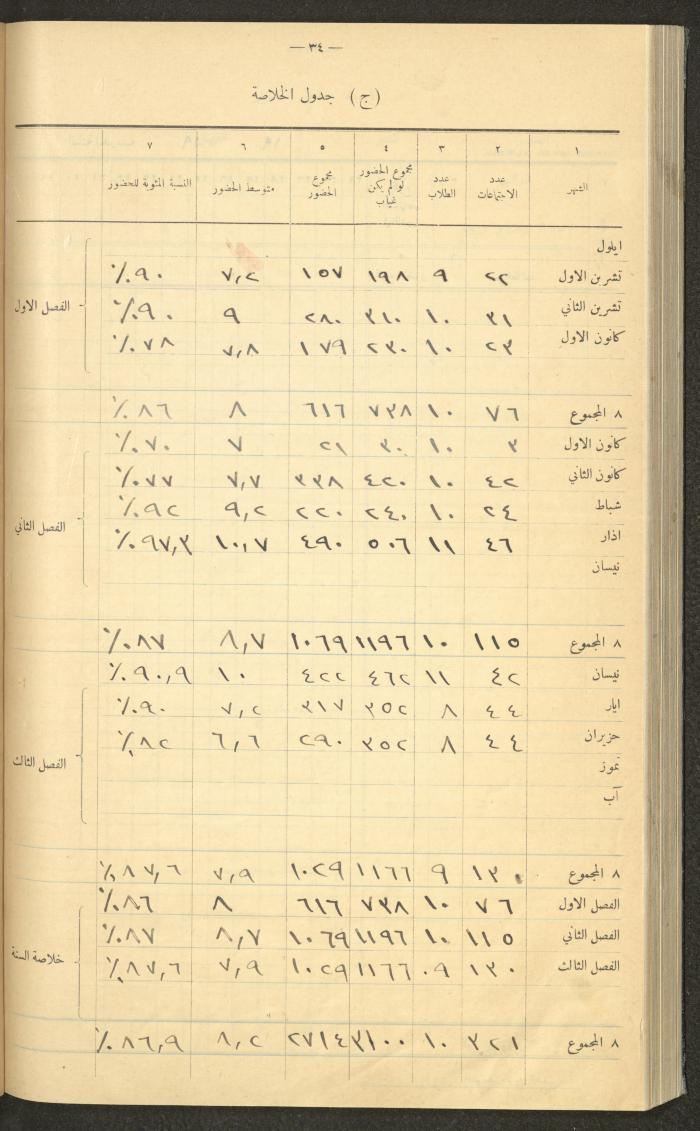 — ٣٤ —
(ج) جدول الخلاصة
١ ٢ ٣ ٤ ٥ ٦ ٧
الشهر عدد الاجتماعات عدد الطلاب مجموع الحضور لو لم يكن غياب مجموع الحضور متوسط الحضور النسبة المئوية للحضور
ايلول
تشرين الاول ٢٢ ٩ ١٩٨ ١٥٧ ٧,٢ ٩٠٪
تشرين الثاني ٣١ ١٠ ٣١٠ ٢٨٠ ٩ ٩٠٪
الفصل الاول
كانون الاول ٢٣ ١٠ ٢٣٠ ١٧٩ ٧,٨ ٧٨٪
٨ المجموع ٧٦ ١٠ ٧٣٨ ٦١٦ ٨ ٨٦٪
كانون الاول ٣ ١٠ ٣٠ ٢١ ٧ ٧٠٪
كانون الثاني ٤٢ ١٠ ٤٢٠ ٣٣٨ ٧,٧ ٧٧٪
شباط ٢٤ ١٠ ٢٤٠ ٢٢٠ ٩,٢ ٩٢٪
الفصل الثاني
اذار ٤٦ ١١ ٥٠٦ ٤٩٠ ١٠,٧ ٩٧,٣٪
نيسان
٨ المجموع ١١٥ ١٠ ١١٩٦ ١٠٦٩ ٨,٧ ٨٧٪
نيسان ٤٢ ١١ ٤٦٢ ٤٢٢ ١٠ ٩٠,٩٪
ايار ٤٤ ٨ ٣٥٢ ٣١٧ ٧,٢ ٩٠٪
حزيران ٤٤ ٨ ٣٥٢ ٢٩٠ ٦,٦ ٨٢٪
الفصل الثالث
تموز
آب
٨ المجموع ١٣٠ ٩ ١١٦٦ ١٠٢٩ ٧,٩ ٨٧,٦٪
الفصل الاول ٧٦ ١٠ ٧٣٨ ٦١٦ ٨ ٨٦٪
الفصل الثاني ١١٥ ١٠ ١١٩٦ ١٠٦٩ ٨,٧ ٨٧٪
خلاصة السنة
الفصل الثالث ١٣٠ ٠٩ ١١٦٦ ١٠٢٩ ٧,٩ ٨٧,٦٪
٨ المجموع ٣٢١ ١٠ ٣١٠٠ ٢٧١٤ ٨,٢ ٨٦,٩٪